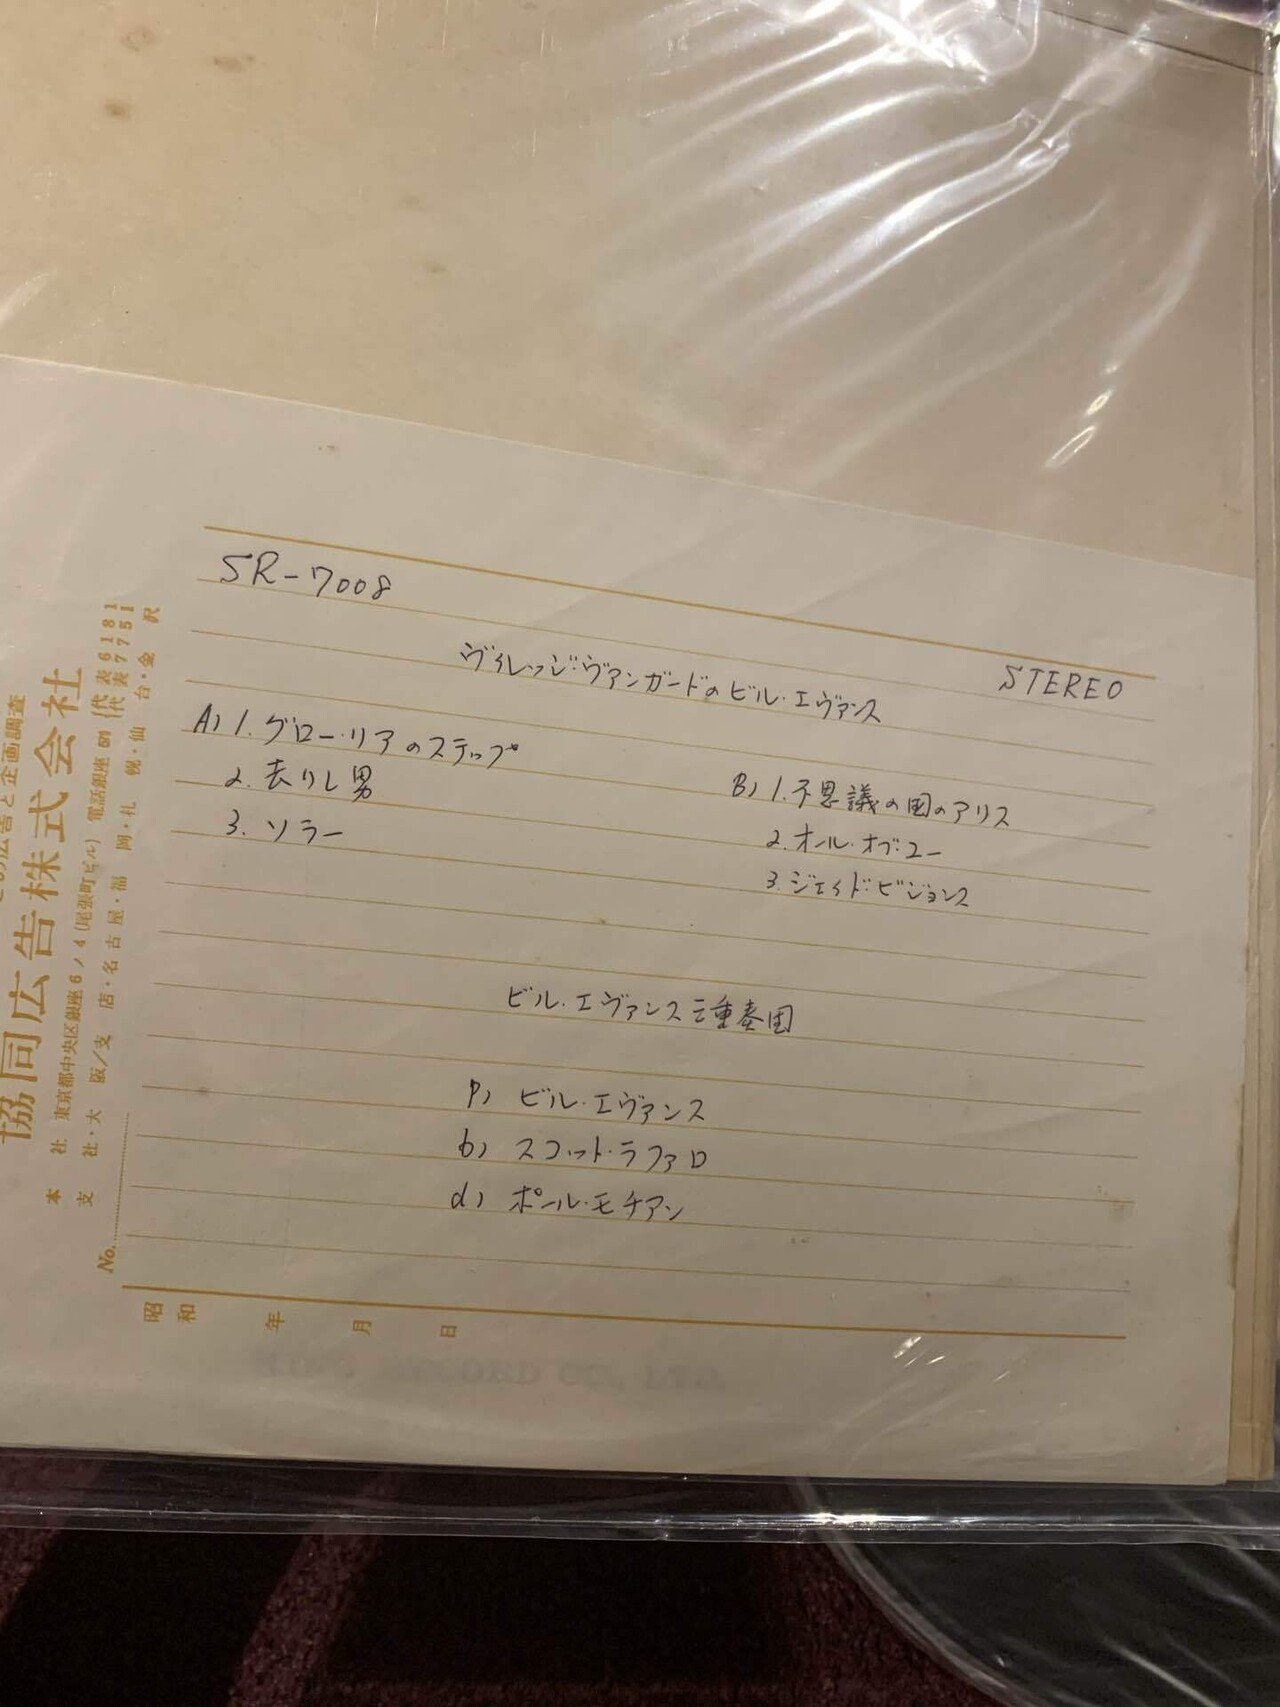 SR-7008
STEREO
ヴィレッジ・ヴァンガードのビル・エヴァンス
A) 1. グローリアのステップ
2. 去りし男
3. ソラー
B) 1. 不思議の国のアリス
2. オール・オブ・ユー
3. ジェイド・ビジョンス
ビル・エヴァンス三重奏団
p) ビル・エヴァンス
b) スコット・ラファロ
d) ポール・モチアン
の広告と企画調査
協同広告株式会社
本社 東京都中央区銀座6ノ4(尾張町ビル) 電話銀座(571)(代表6181)(代表7751)
支社・大阪/支店・名古屋・福岡・札幌・仙台・金沢
No.
昭和 年 月 日
RECORD CO., LTD.